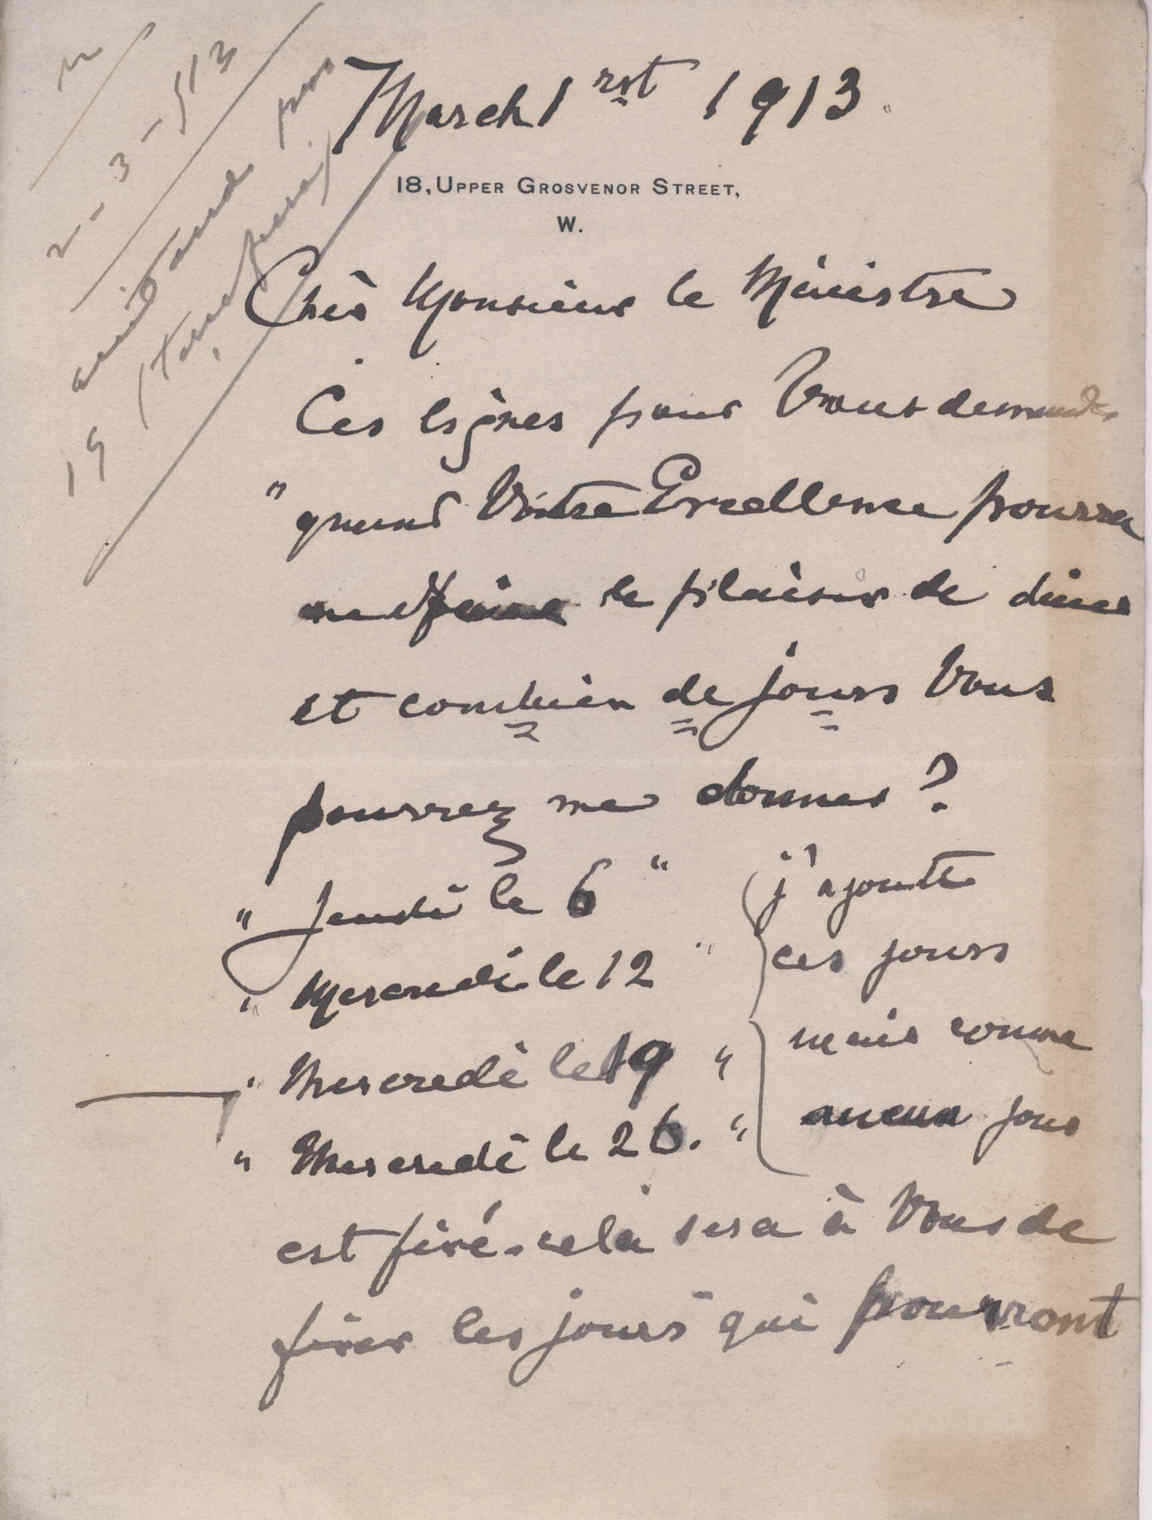 March 1rst 1913.
18, Upper Grosvenor Street,
W.
2-3-913
Chèr Monsieur le Ministre
Ces lignes pour Vous demander
" quand Votre Excellence pourra
me faire le plaisir de diner
et combien de jours Vous
pourrez me donner ?
" Jeudi le 6 "
" Mercredi le 12 "
" Mercredi le 19 "
" Mercredi le 26. "
j'ajoute
ces jours
mais comme
aucun jour
est fixé - cela sera à Vous de
fixer les jours qui pourront